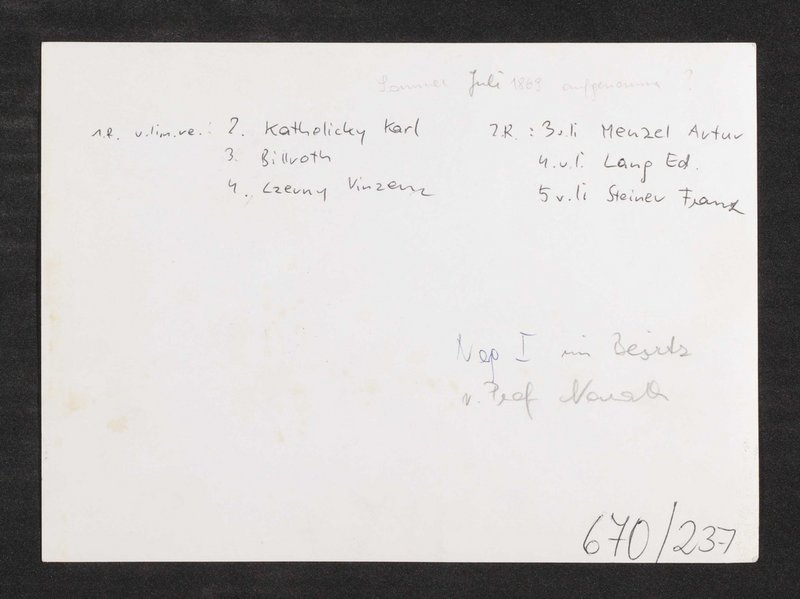 Sommer Juli 1869 aufgenommen ?
1.R. v.li.n.re.: 2. Katholicky Karl
3. Billroth
4. Czerny Vinzenz
2.R. : 3.v.li Menzel Artur
4.v.li. Lang Ed.
5 v.li Steiner Franz
Neg I im Besitz
v. Prof Navratil
670/237